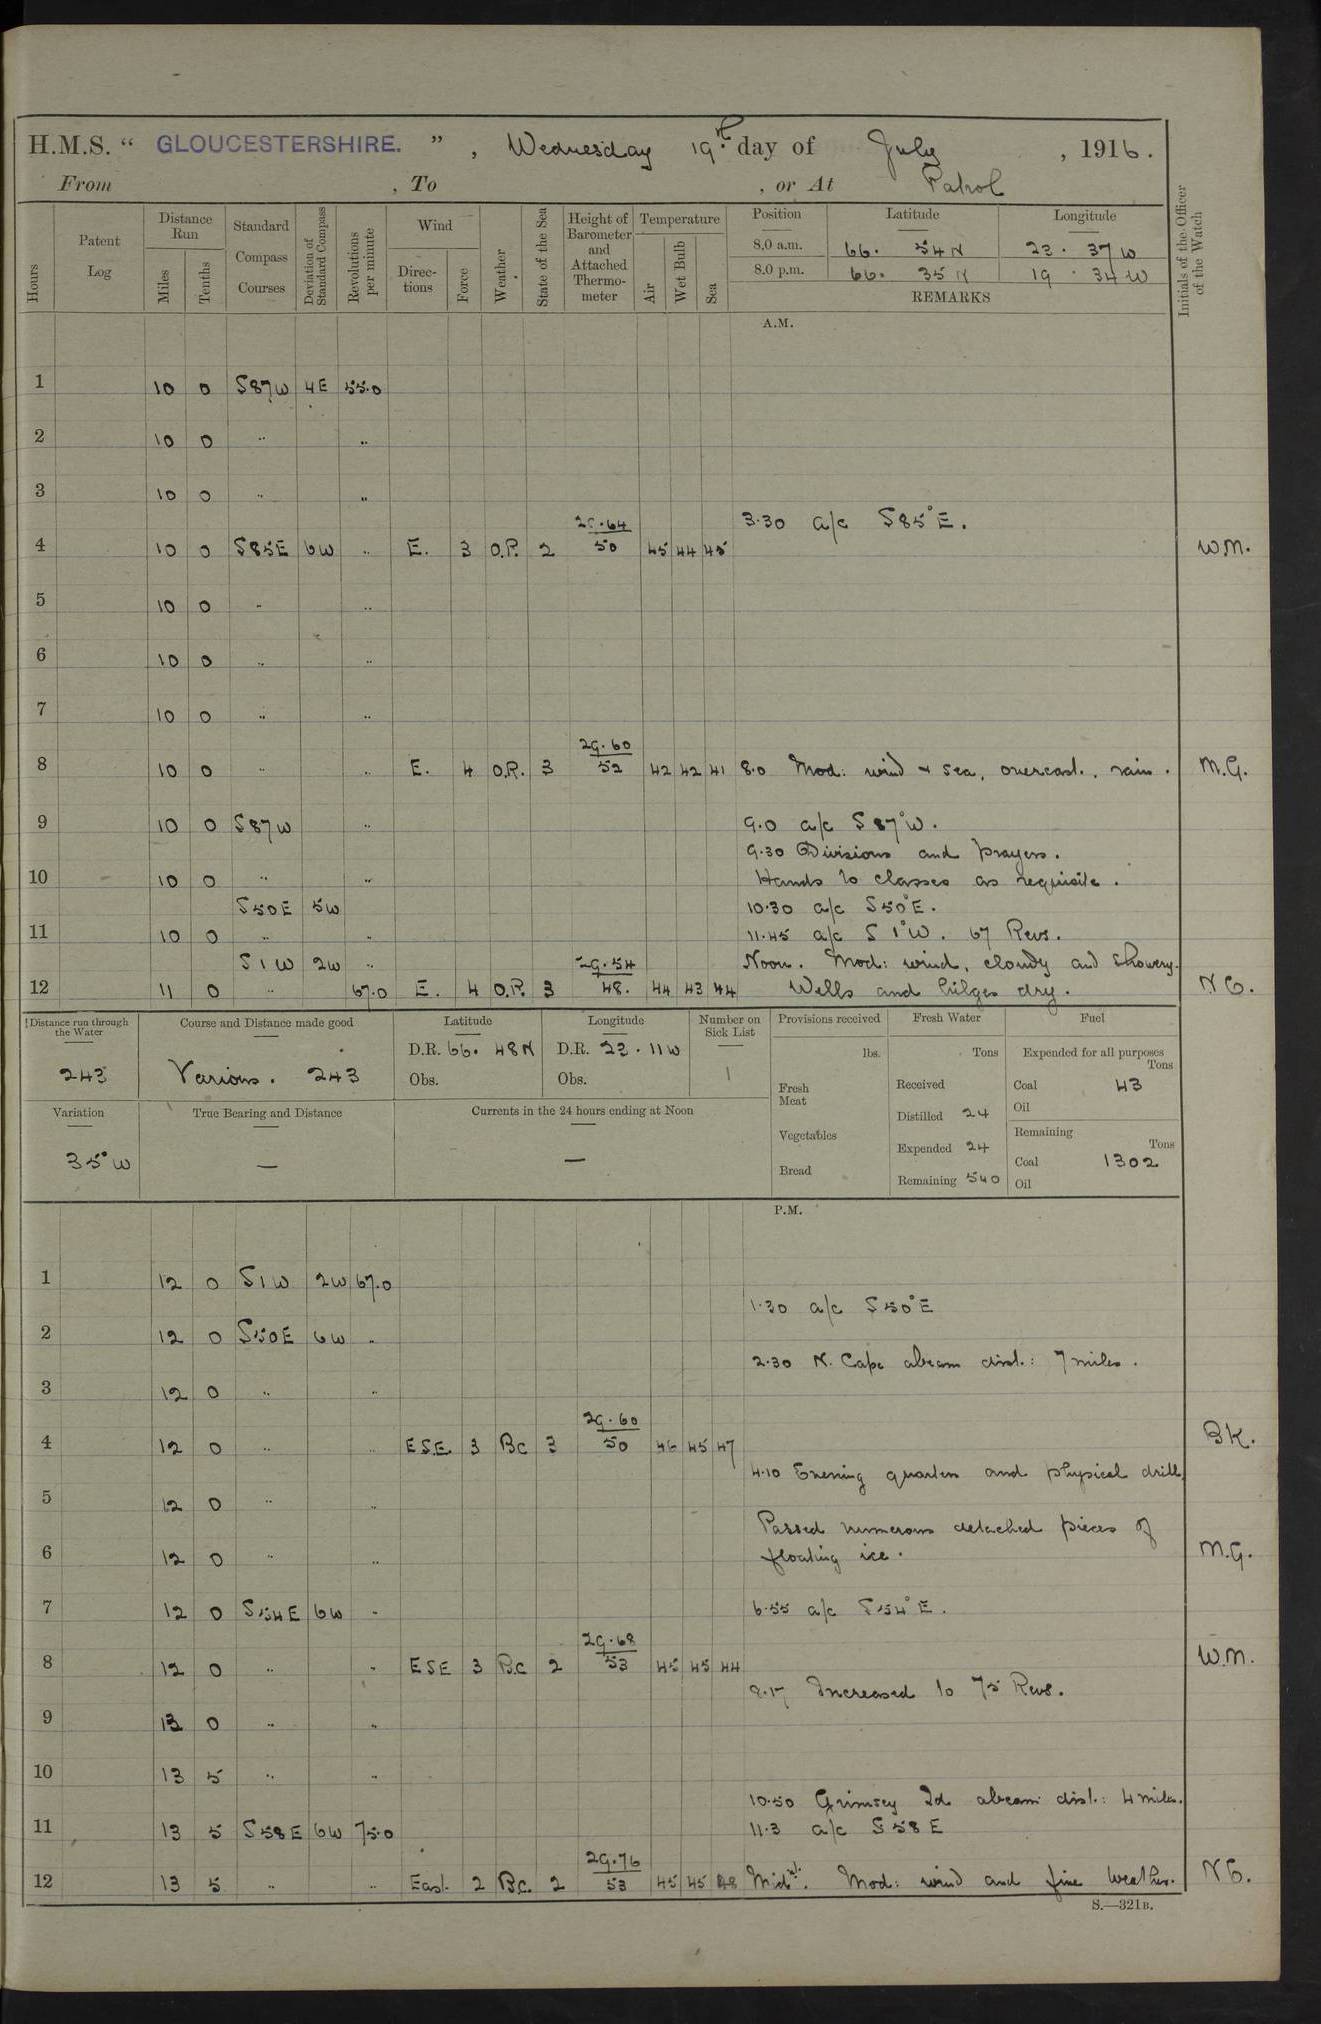 H.M.S. “ GLOUCESTERSHIRE. ” , Wednesday 19th day of July , 1916.
From , To , or At Patrol
Hours Patent Log Distance Run Miles Tenths Standard Compass Courses Deviation of Standard Compass Revolutions per minute Wind Directions Force Weather State of the Sea Height of Barometer and Attached Thermometer Temperature Air Wet Bulb Sea Position Latitude Longitude Initials of the Officer of the Watch
8.0 a.m. 66. 54 N 23. 37 W
8.0 p.m. 66. 35 N 19. 34 W
REMARKS
A.M.
1 10 0 S87W 4E 55.0
2 10 0 " "
3 10 0 " "
3.30 a/c S85°E.
4 10 0 S85E 6W " E. 3 O.P. 2 29.64 50 45 44 45 W.M.
5 10 0 " "
6 10 0 " "
7 10 0 " "
8 10 0 " " E. 4 O.R. 3 29.60 52 42 42 41 8.0 Mod: wind & sea, overcast, rain. M.G.
9 10 0 S87W " 9.0 a/c S87°W.
9.30 Divisions and prayers.
10 10 0 " " Hands to classes as requisite.
S50E 5W 10.30 a/c S50°E.
11 10 0 " " 11.45 a/c S 1°W. 67 Revs.
S1W 2W " Noon. Mod: wind, cloudy and showery.
12 11 0 " 67.0 E. 4 O.P. 3 29.54 48. 44 43 44 Wells and bilges dry. N.C.
Distance run through the Water Course and Distance made good Latitude Longitude Number on Sick List Provisions received Fresh Water Fuel
243 Various. 243 D.R. 66. 48N D.R. 23. 11W 1 lbs. Tons Expended for all purposes Tons
Obs. Obs. Fresh Meat Received Coal 43
Oil
Variation True Bearing and Distance Currents in the 24 hours ending at Noon Distilled 24
Vegetables Remaining Tons
35°W — — Expended 24 Coal 1302
Bread Remaining 540 Oil
P.M.
1 12 0 S1W 2W 67.0
1.30 a/c S50°E
2 12 0 S50E 6W "
2.30 N. Cape abeam dist.: 7 miles.
3 12 0 " "
4 12 0 " " E.S.E. 3 Bc 3 29.60 50 46 45 47 B.K.
4.10 Evening quarters and physical drill
5 12 0 " "
Passed numerous detached pieces of
6 12 0 " " floating ice. M.G.
7 12 0 S54E 6W " 6.55 a/c S54°E.
8 12 0 " " ESE 3 B.c 2 29.68 53 45 45 44 W.M.
8.17 Increased to 75 Revs.
9 13 0 " "
10 13 5 " "
10.50 Grimsey Id abeam dist.: 4 miles.
11 13 5 S58E 6W 75.0 11.3 a/c S58E
12 13 5 " " East. 2 B.c. 2 29.76 53 45 45 48 Midt. Mod: wind and fine weather. N.C.
S.—321B.